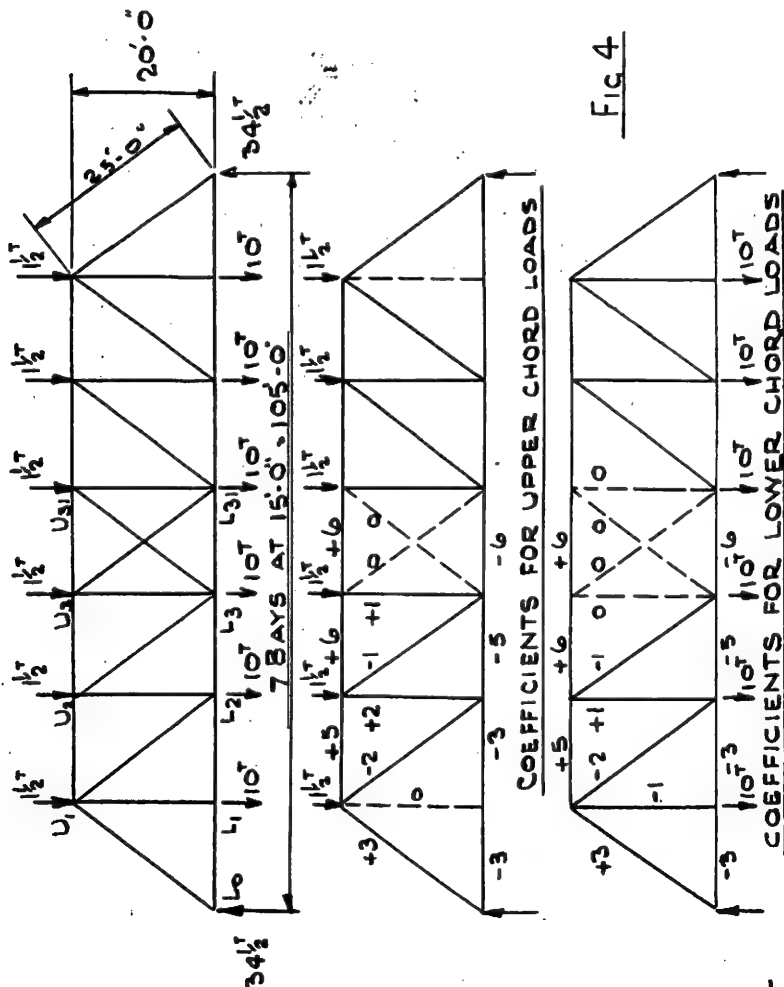 1½T 1½T 1½T 1½T 1½T 1½T
U1 U2 U3 U31
25'-0"
20'-0"
L0 L1 L2 L3 L31
10T 10T 10T 10T 10T 10T
34½T 34½T
7 BAYS AT 15'-0" = 105'-0"
1½T 1½T 1½T 1½T 1½T 1½T
+5 +6 +6
+3 0 -2 +2 -1 +1 0 0
-3 -3 -5 -6
COEFFICIENTS FOR UPPER CHORD LOADS
Fig 4
+5 +6 +6
+3 -1 -2 +1 -1 0 0 0 0
-3 -3 -5 -6
10T 10T 10T 10T 10T 10T
COEFFICIENTS FOR LOWER CHORD LOADS